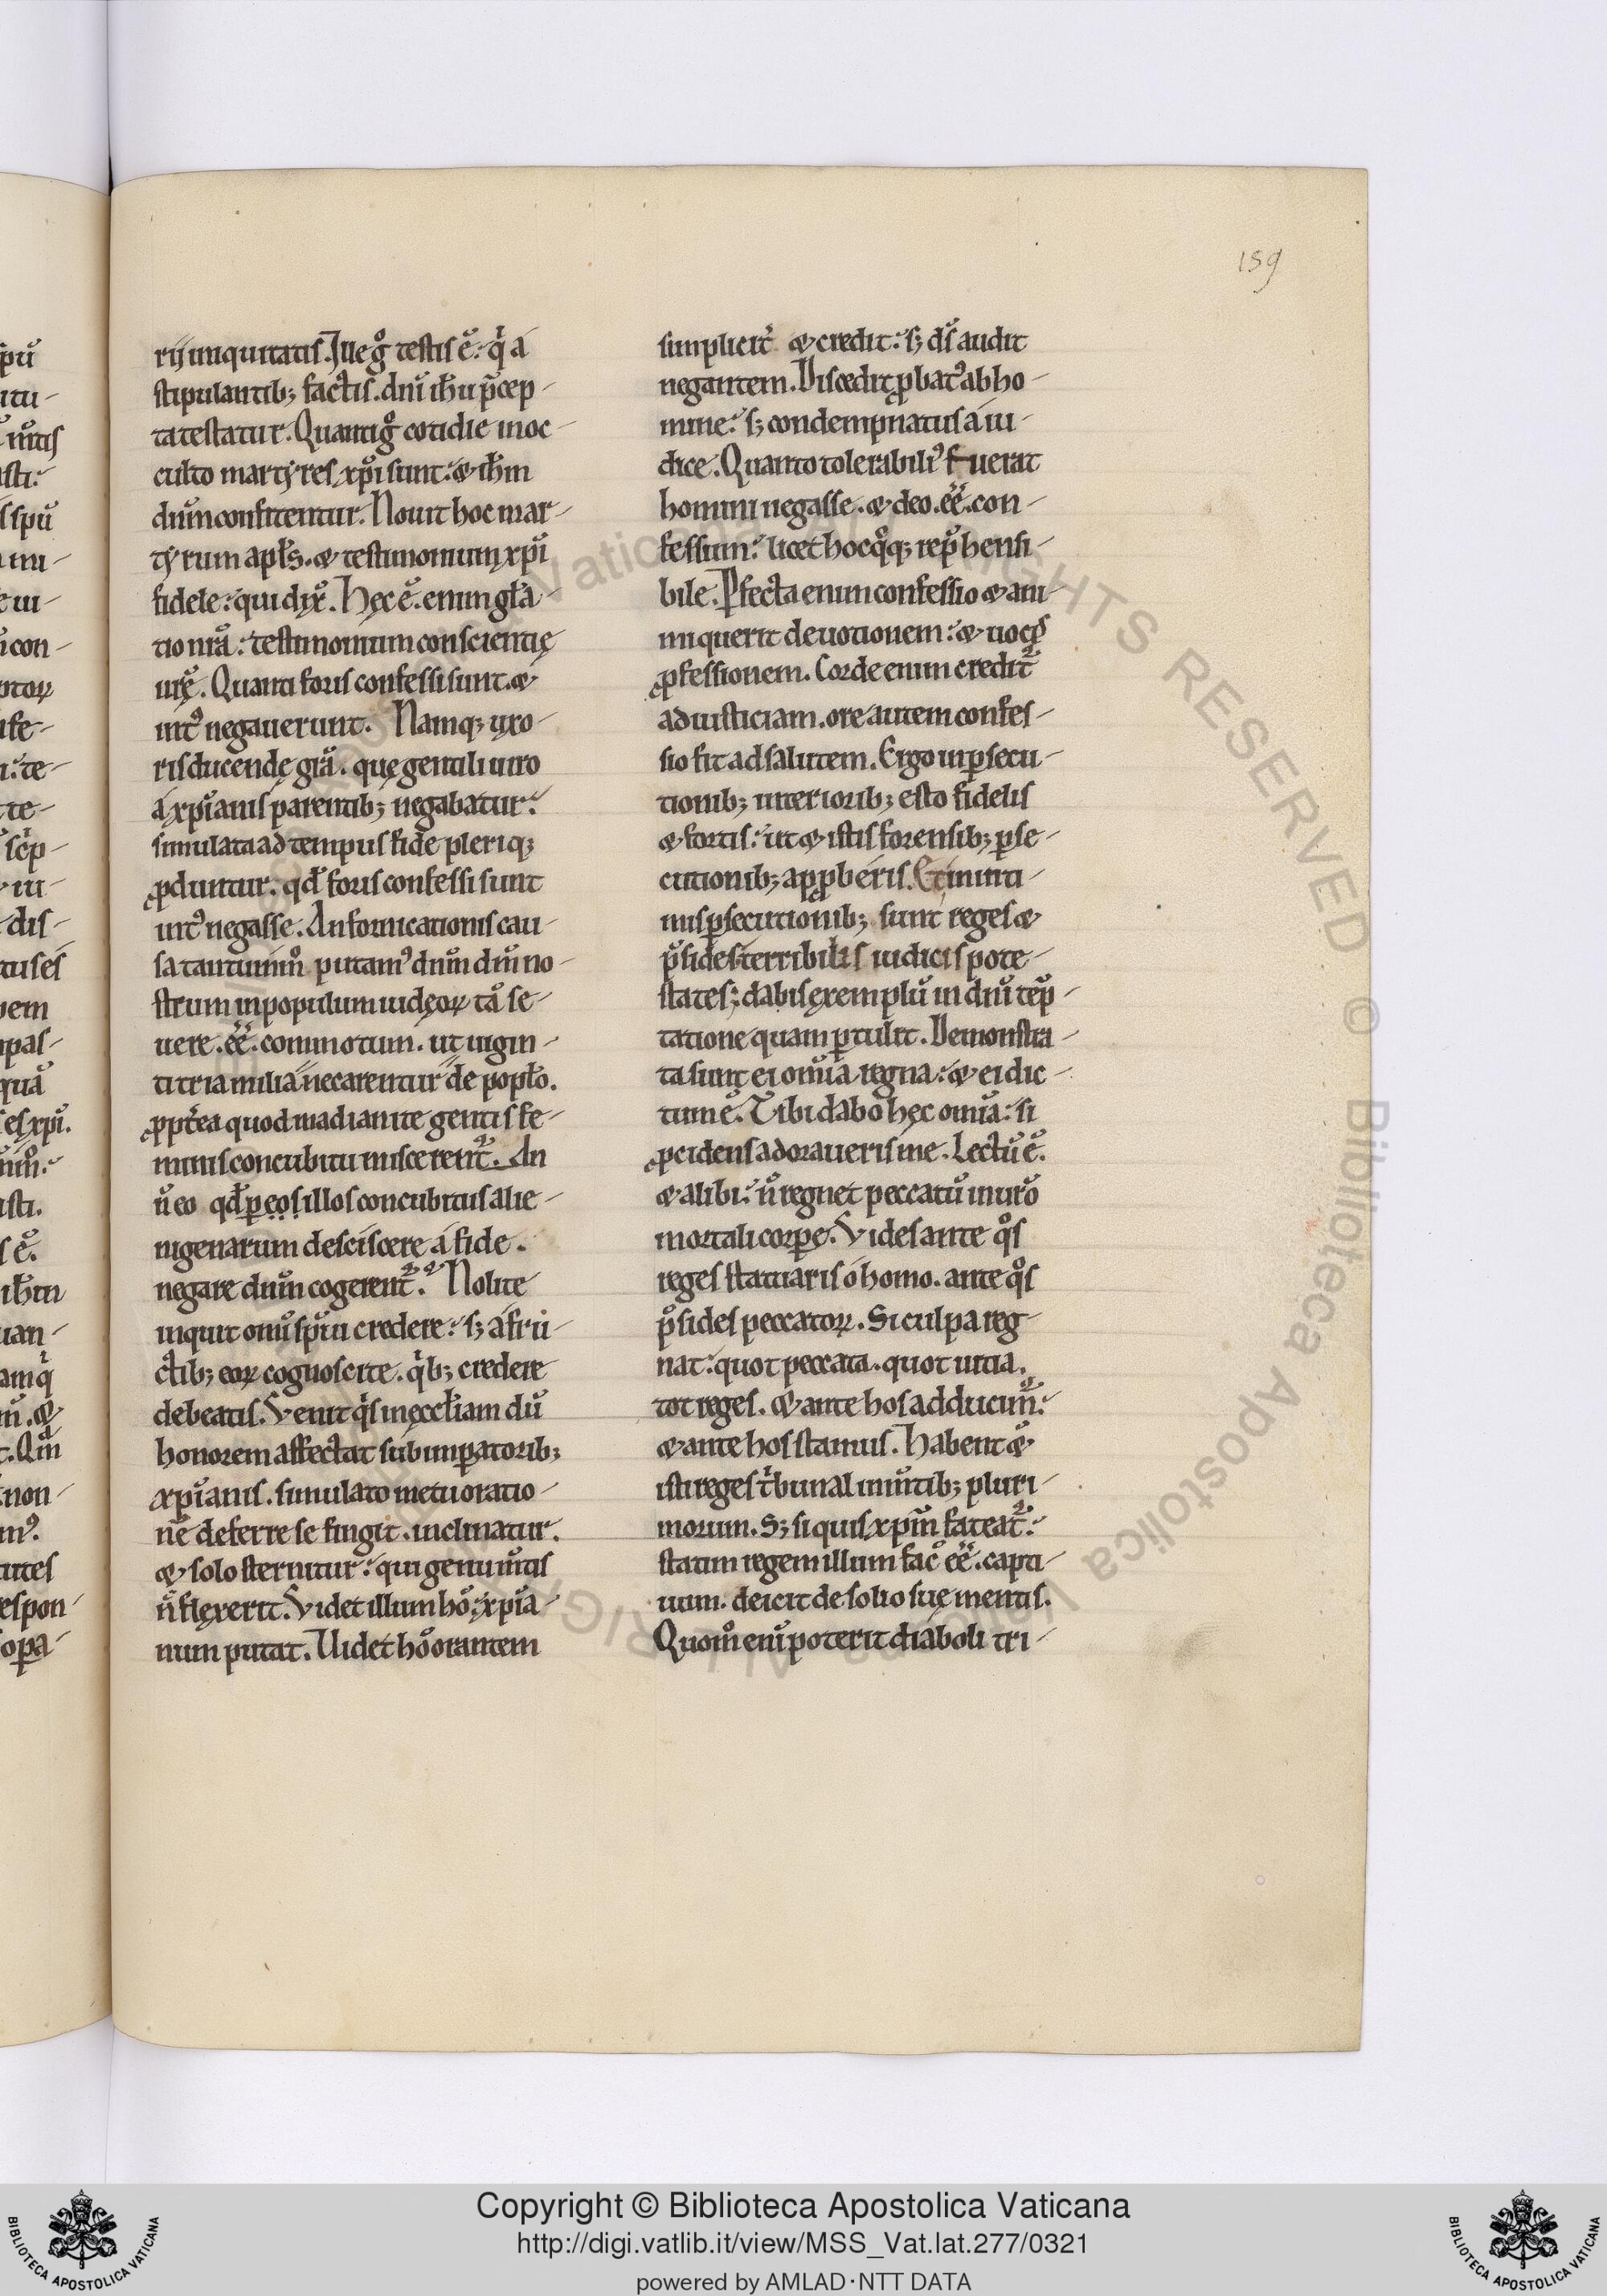 159
rij iniquitatis. Ille g̊ testis ē. qi a
stipulantib; factis. dn̄i ih̄u p̄cep-
ta testatur. Quanti g̊ cotidie in oc-
culto martyres xp̄i sunt. & ih̄m
dn̄m confitentur. Nouit hoc mar-
tyrum apl̄s. & testimonium xp̄i
fidele. qui dix̄. Hęc ē. enim gl̄a-
tio nr̄a. testimonium conscientię
nr̄ę. Quanti foris confessi sunt. &
int' negauerunt. Namq; uxo-
ris ducendę grā. quę gentili uiro
a xp̄ianis parentib; negabatur.
simulata ad tempus fide pleriq;
ꝓduntur. qđ foris confessi sunt
int' negasse. An fornicationis cau-
sa tantum̄o putam' dn̄m dm̄ no-
strum in populum iudęoꝝ tā se-
uere. ēē. commotum. ut uigin-
ti tria milia necarentur de popl̄o.
ꝓpt̄ea quod madianite gentis fe-
minis concubitu miscerent̄. An
n̄ eo qđ ꝑ eos illos concubitus alie-
nigenarum desciscere a fide.
negare dn̄m cogerent̄. Nolite
inquit omī sp̄iu credere. s; a fru-
ctib; eoꝝ cognoscite. qib; credere
debeatis. Venit qis in ęccl̄iam dū
honorem affectat sub imꝑatorib;
xp̄ianis. simulato metu oratio-
nē deferre se fingit. inclinatur.
& solo sternitur. qui genu m̄tis
n̄ flexerit. Videt illum hō; xp̄ia-
num putat. Videt hō orantem
simplicit̄ & credit. s; ds̄ audit
negantem. Discedit ꝓbat' ab ho-
mine. s; condempnatus a iu-
dice. Quanto tolerabili' fuerat
homini negasse. & deo. ēē. con-
fessum. licet hoc qoq; rep̄hensi-
bile. Ꝑfecta enim confessio & ani-
mi querit deuotionem. & uocis
ꝓfessionem. Corde enim credit̄
ad iusticiam. ore autem confes-
sio fit ad salutem. Ergo in ꝑsecu-
tionib; interiorib; esto fidelis
& fortis. ut & istis forensib; ꝑse-
cutionib; apꝓberis. Et in inti-
mis ꝑsecutionib; sunt reges &
p̄sides terribilis iudicis pote-
states; dabis exemplū in dn̄i tēp-
tatione quam ꝑtulit. Demonstra-
ta sunt ei omīa regna. & ei dic-
tum ē. Tibi dabo hęc omīa. si
ꝓcidens adoraueris me. Lectū ē.
& alibi. n̄ regnet peccatū in ur̄o
mortali corpe. Vides ante qos
reges statuaris o homo. ante qos
p̄sides peccatoꝝ. Si culpa reg-
nat. quot peccata. quot uitia.
tot reges. & ante hos adducim̄.
& ante hos stamus. Habent &
isti reges tibunal in m̄tib; pluri-
morum. S; si quis xp̄m fateat̄.
statim regem illum fac̄ ēē. capti-
uum. deicit de solio suę mentis.
Quom̊ enī poterit diaboli tri-
Copyright © Biblioteca Apostolica Vaticana
http://digi.vatlib.it/view/MSS_Vat.lat.277/0321
powered by AMLAD·NTT DATA
BIBLIOTECA APOSTOLICA VATICANA
BIBLIOTECA APOSTOLICA VATICANA